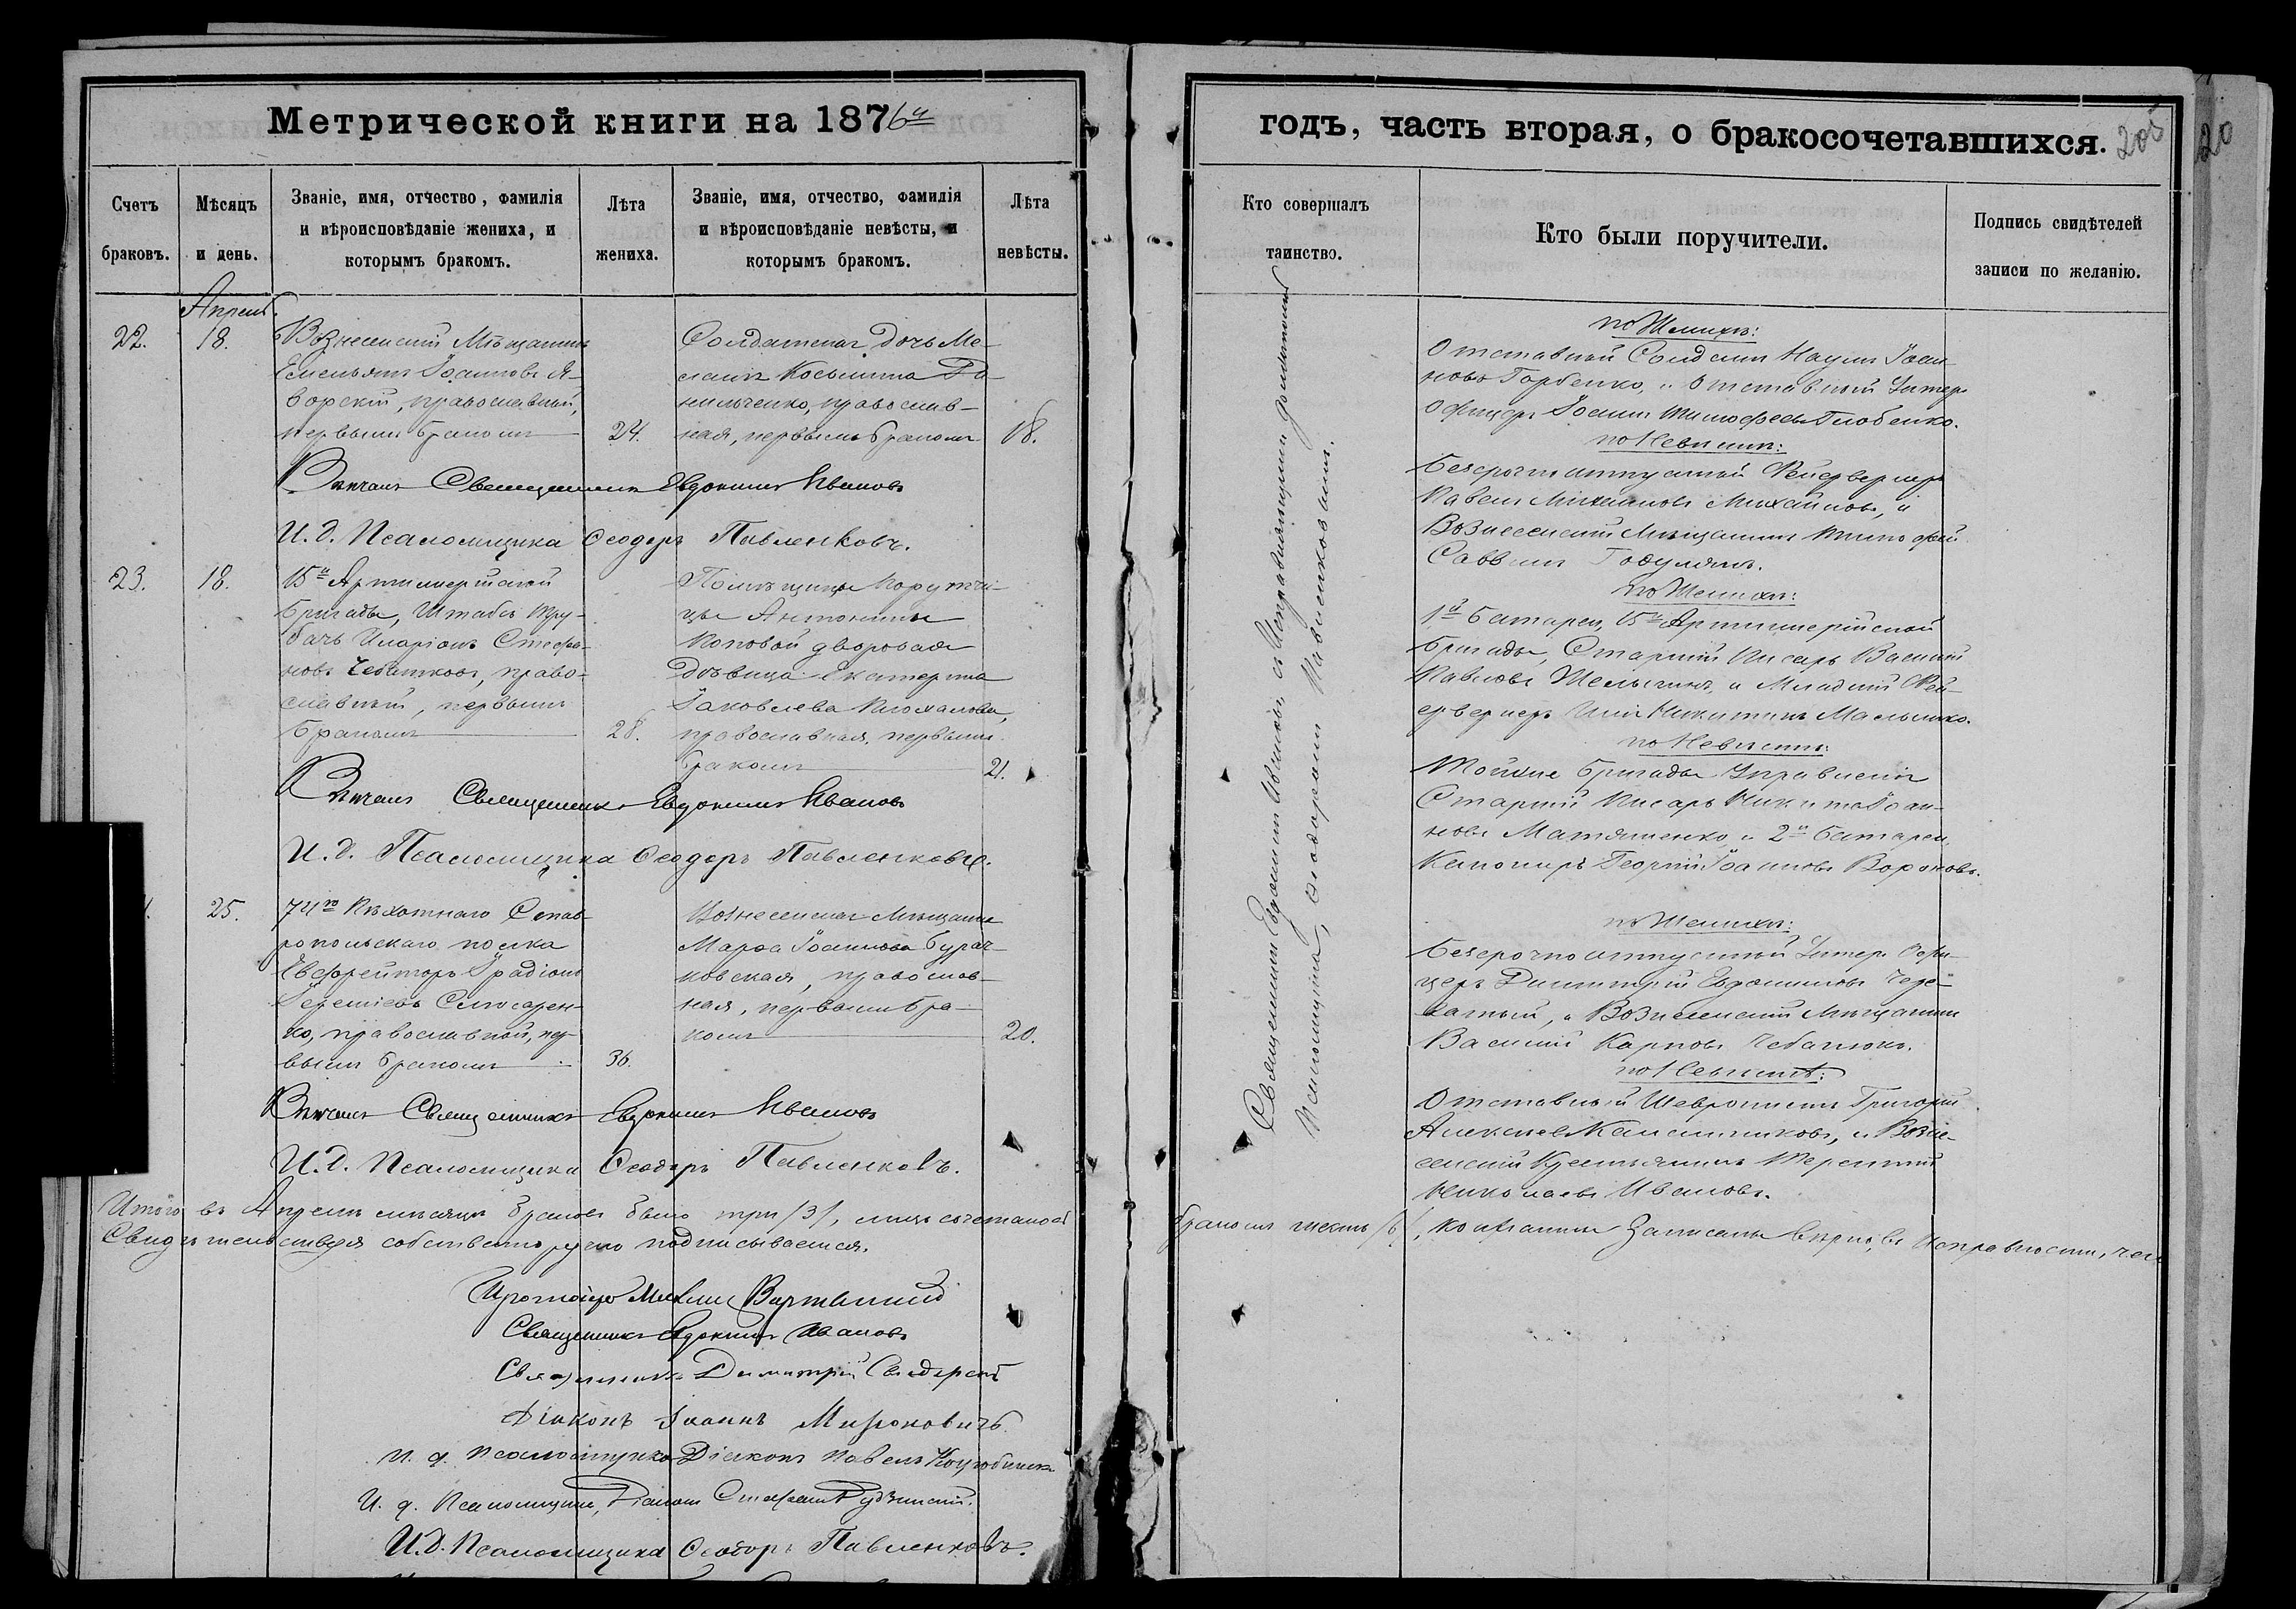 Метрической книги на 1876й
Счетъ браковъ.
Мѣсяцъ и день.
Званіе, имя, отчество, фамилія
и вѣроисповѣданіе жениха, и
которымъ бракомъ.
Лѣта жениха.
Званіе, имя, отчество, фамилія
и вѣроисповѣданіе невѣсты, и
которымъ бракомъ.
Лѣта невѣсты.
Апрель.
22.
18.
Вознесенскій Мѣщанинъ
Емельянъ Іоанновъ Я-
ворскій, православный,
первымъ бракомъ
24.
Солдатская дочь Ме-
ланія Косьмина Да-
нильченко, православ-
ная, первымъ бракомъ
18.
Вѣнчалъ Священникъ Евдокимъ Ивановъ
И. д. Псаломщика Ѳеодоръ Павленковъ.
23.
18.
15й Артиллерійской
бригады, Штабъ Тру-
бачъ Иларіонъ Стефа-
новъ, право-
славный, первымъ
бракомъ
28.
Помѣщицы Поручи-
цы Антонины
Поповой дворовая
дѣвица Екатерина
Іаковлева
православная, первымъ
бракомъ
21.
Вѣнчалъ Священникъ Евдокимъ Ивановъ
И. д. Псаломщика Ѳеодоръ Павленковъ.
25.
74го Пѣхотнаго Став-
ропольскаго полка
Ефрейторъ Иродіонъ
Іереміевъ Слюсарен-
ко, православный, пер-
вымъ бракомъ
36.
Вознесенская Мѣщанка
Марѳа Іоаннова Бурач-
ковская, православ-
ная, первымъ бра-
комъ
20.
Вѣнчалъ Священникъ Евдокимъ Ивановъ
И. д. Псаломщика Ѳеодоръ Павленковъ.
Итого въ Апрелѣ мѣсяцѣ браковъ было три /3/, лицъ сочеталось
Свидѣтельствуя собственноручно подписываемся.
Протоіерей
Священникъ Евдокимъ Ивановъ
Священникъ Димитрій
Діаконъ Іоаннъ Мироновичъ
И. д. Псаломщика Діаконъ Павелъ
И. д. Псаломщика, Діаконъ Стефанъ Рудзинскій.
И. д. Псаломщика Ѳеодоръ Павленковъ.
годъ, часть вторая, о бракосочетавшихся.
205
20
Кто совершалъ таинство.
Кто были поручители.
Подпись свидѣтелей
записи по желанію.
Священникъ Евдокимъ Ивановъ съ Исправляющимъ должность
Псаломщика, Ѳеодоромъ Павленковымъ.
по Женихѣ:
Отставной Солдатъ Наумъ Іоан-
новъ Горбенко, и отставной Унтеръ
Офицеръ Іоаннъ Тимофеевъ Глобенко.
по Невѣстѣ:
Безсрочноотпускной Фейерверкеръ
Павелъ Михаиловъ Михайловъ, и
Вознесенскій Мѣщанинъ Тимофей
Саввинъ
по Женихѣ:
1й батареи, 15й Артиллерійской
бригады, Старшій Писарь Василій
Павловъ и Младшій Фей-
ерверкеръ Илія Никитинъ
по Невѣстѣ:
Тойже бригады Управленія
Старшій Писарь Никита Іоан-
новъ Матяшенко и 2й батареи,
Канониръ Георгій Іоанновъ Вороновъ.
по Женихѣ:
Безсрочноотпускной Унтеръ Офи-
церъ Димитрій Евдокимовъ
и Вознесенскій Мѣщанинъ
Василій Карповъ
по Невѣстѣ:
Отставной Шевронистъ Григорій
Алексѣевъ и Возне-
сенскій Крестьянинъ Терентій
Николаевъ Ивановъ.
бракомъ шесть /6/, кои нами записаны вѣрно, въ исправности, чемъ